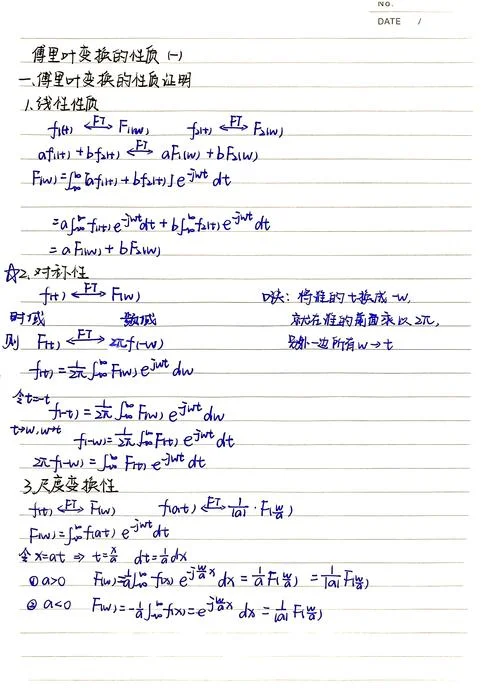 No.
DATE /
傅里叶变换的性质 (一)
一、傅里叶变换的性质证明
1、线性性质
f₁(t) ⟷FT F₁(w) f₂(t) ⟷FT F₂(w)
af₁(t) + bf₂(t) ⟷FT aF₁(w) + bF₂(w)
F(w) = ∫_{-∞}^{∞} [af₁(t) + bf₂(t)] e^{-jwt} dt
= a∫_{-∞}^{∞} f₁(t) e^{-jwt} dt + b∫_{-∞}^{∞} f₂(t) e^{-jwt} dt
= aF₁(w) + bF₂(w)
☆2、对补性
f(t) ⟷FT F(w) 口诀: 将谁的 t 换成 -w,
时域 数域 就在谁的前面乘以 2π,
则 F(t) ⟷FT 2πf(-w) 另外一边所有 w → t
f(t) = 1/2π ∫_{-∞}^{∞} F(w) e^{jwt} dw
令t=-t
f(-t) = 1/2π ∫_{-∞}^{∞} F(w) e^{-jwt} dw
t→w, w→t f(-w) = 1/2π ∫_{-∞}^{∞} F(t) e^{-jwt} dt
2πf(-w) = ∫_{-∞}^{∞} F(t) e^{-jwt} dt
3、尺度变换性
f(t) ⟷FT F(w) f(at) ⟷FT 1/|a| · F(w/a)
F(w) = ∫_{-∞}^{∞} f(at) e^{-jwt} dt
令 x=at ⇒ t=x/a dt=1/a dx
① a>0 F(w) = 1/a ∫_{-∞}^{∞} f(x) e^{-j w/a x} dx = 1/a F(w/a) = 1/|a| F(w/a)
② a<0 F(w) = -1/a ∫_{-∞}^{∞} f(x) = e^{-j w/a x} dx = 1/|a| F(w/a)